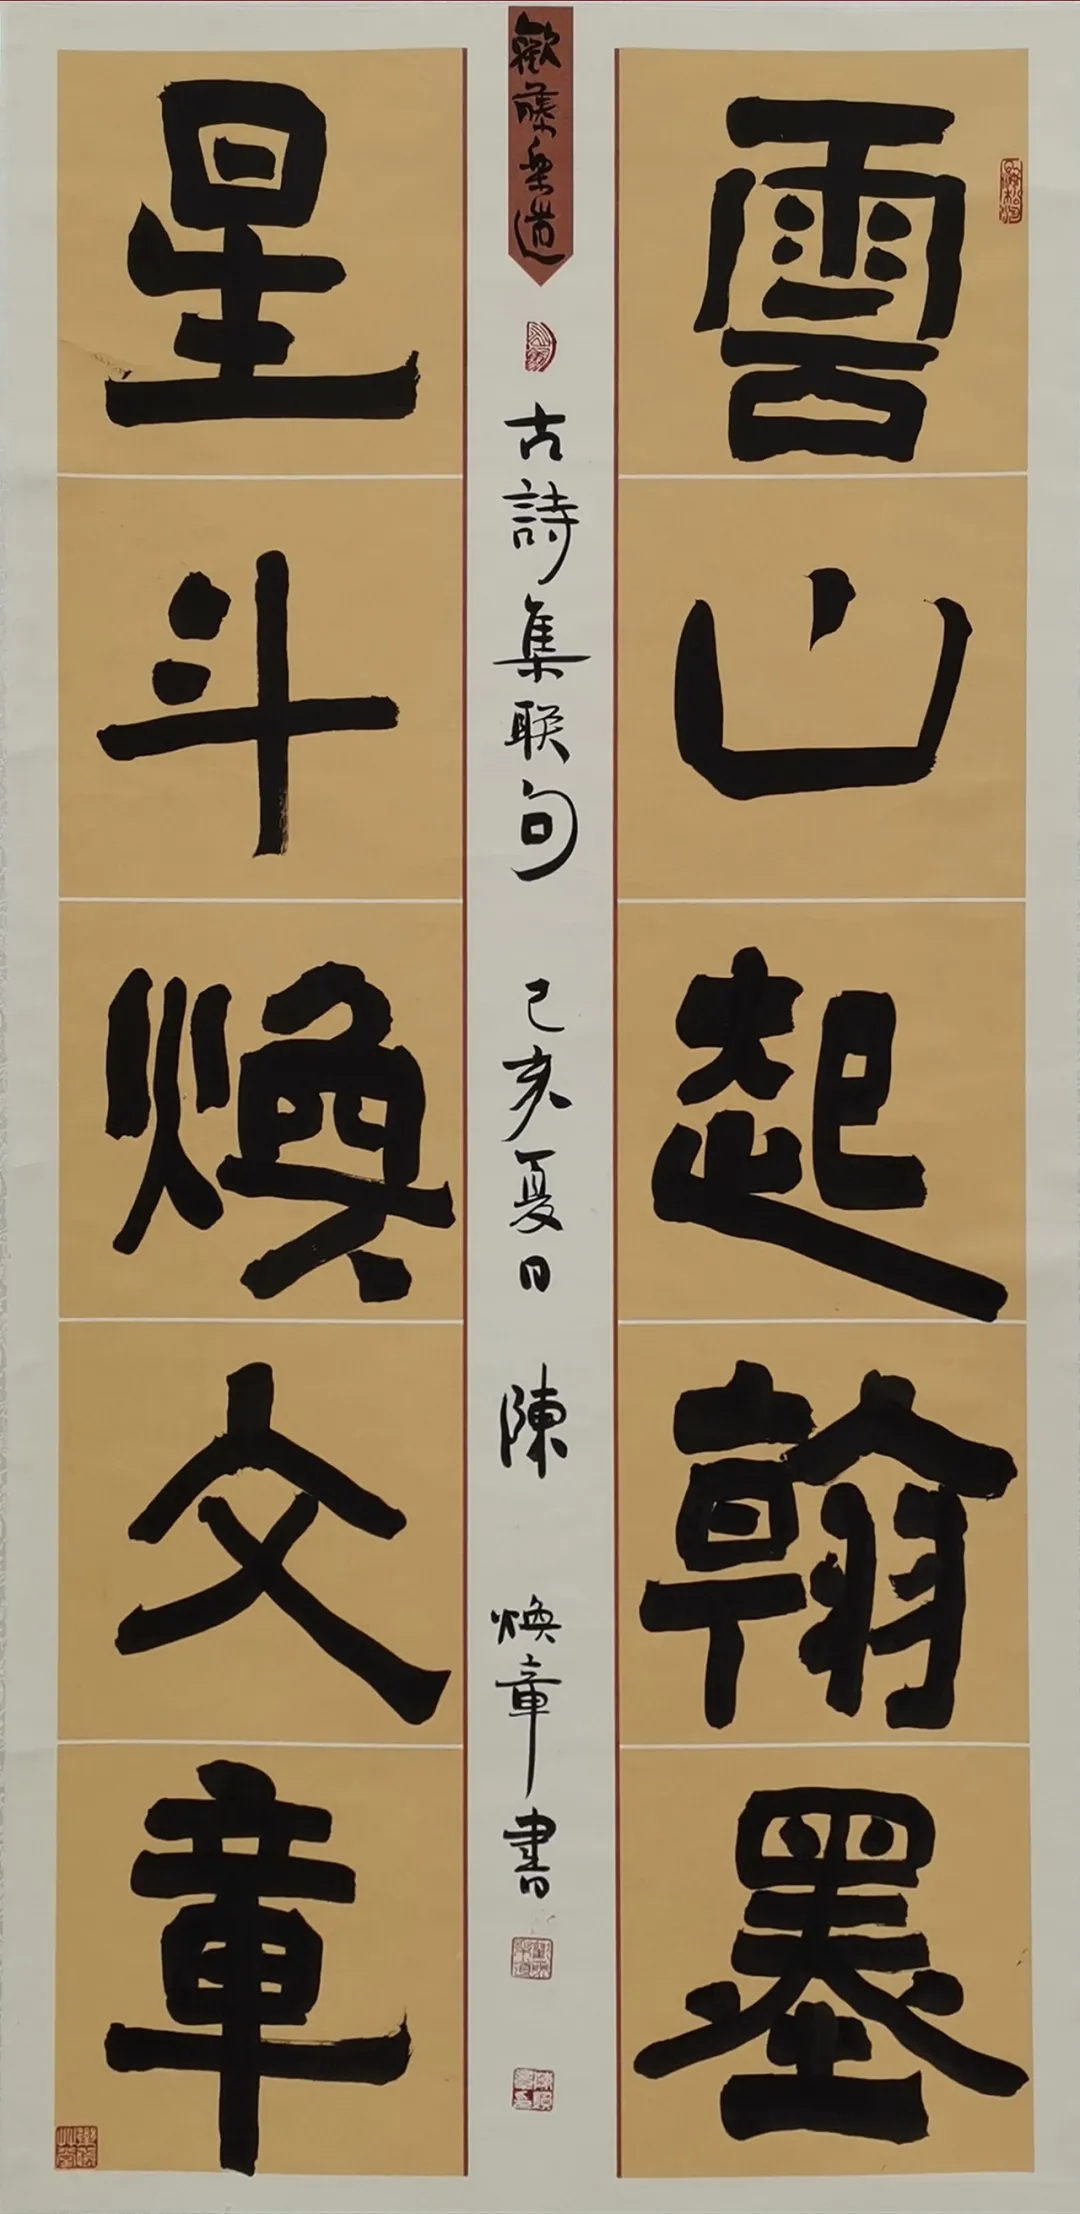 雲山起翰墨
星斗煥文章
歡藤樂道
古詩集聯句 己亥夏日 陳 煥章書